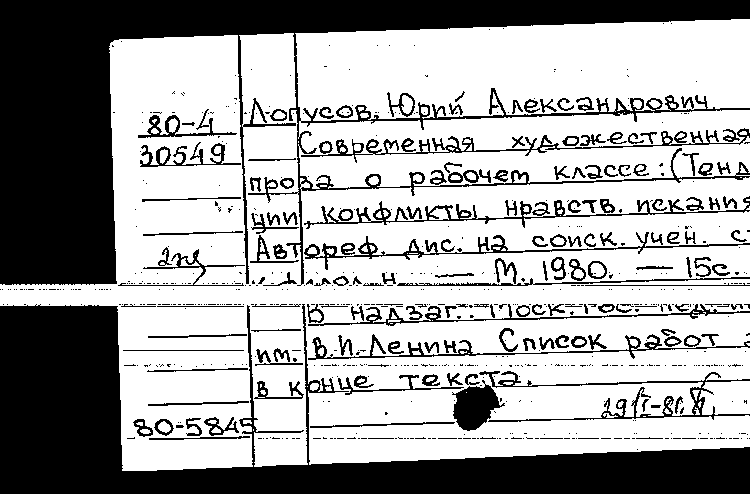 80-4
30549
2 экз
Лопусов, Юрий Александрович
Современная художественная
проза о рабочем классе: (Тенд
ции, конфликты, нравств. искания
Автореф. дис. на соиск. учен. ст
к. филол. н. — М., 1980. — 15с.
В надзаг.: Моск. гос. пед. и
им. В.И. Ленина Список работ а
в конце текста.
80-5845